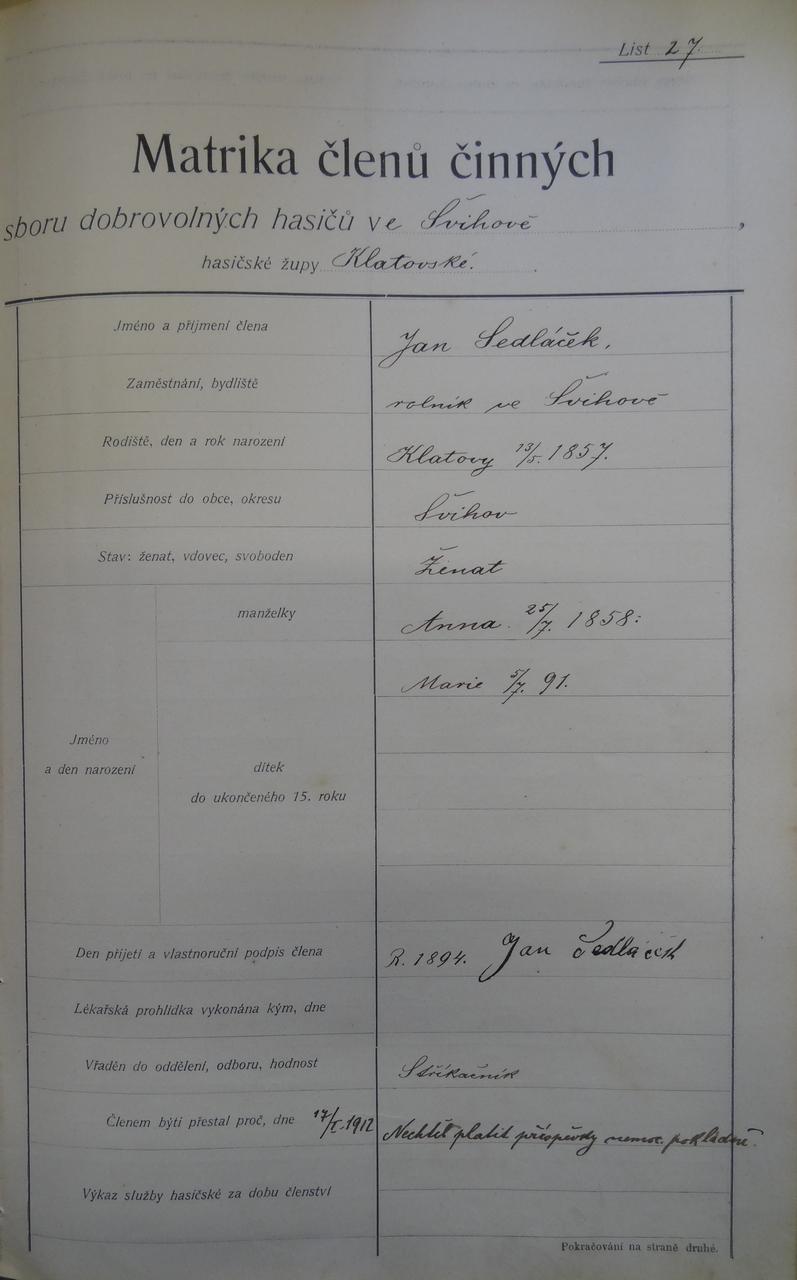 List 27
Matrika členů činných
sboru dobrovolných hasičů ve Švihově,
hasičské župy Klatovské.
Jméno a příjmení člena Jan Sedláček.
Zaměstnání, bydliště rolník ve Švihově
Rodiště, den a rok narození Klatovy 13/5. 1857.
Příslušnost do obce, okresu Švihov
Stav: ženat, vdovec, svoboden Ženat
manželky Anna 25/7. 1858.
Marie 5/7. 91.
Jméno
a den narození dítek
do ukončeného 15. roku
Den přijetí a vlastnoruční podpis člena R. 1894. Jan Sedláček
Lékařská prohlídka vykonána kým, dne
Vřaděn do oddělení, odboru, hodnost Stříkačník
Členem býti přestal proč, dne 17/I. 1912 Nechtěl platit příspěvky nemoc. pokladně.
Výkaz služby hasičské za dobu členství
Pokračování na straně druhé.